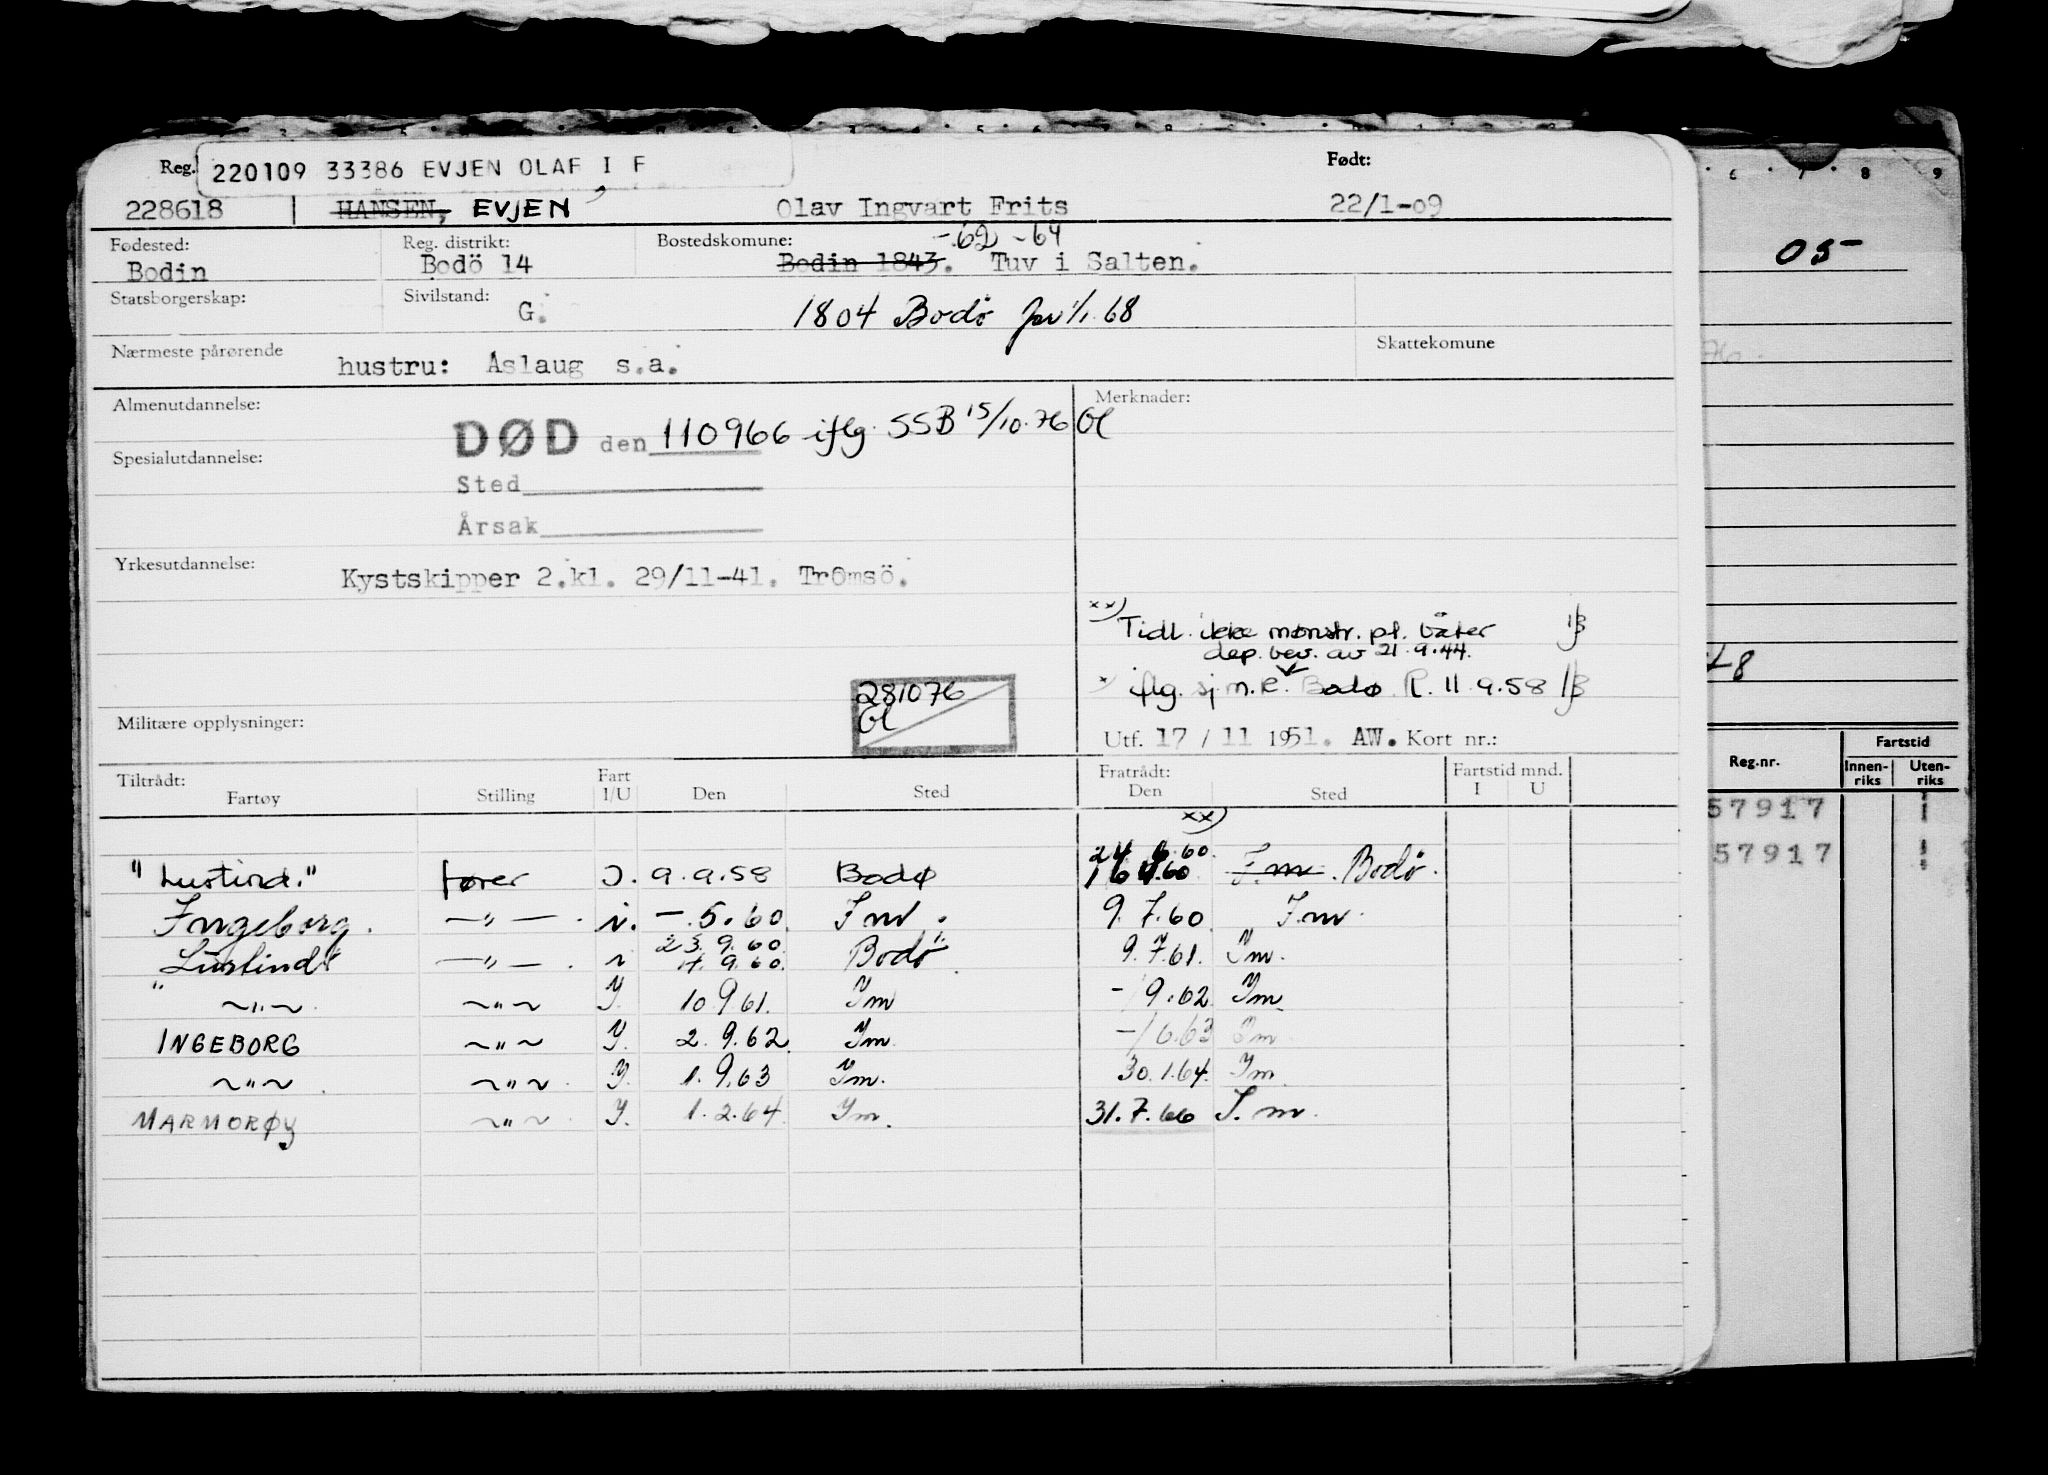 Reg. 220109 33386 EVJEN OLAF I F Født:
228618 HANSEN, EVJEN, Olav Ingvart Frits 22/1-09
Fødested: Reg. distrikt: Bostedskomune: -62 -64
Bodin Bodö 14 Bodin 1843. Tuv i Salten.
Statsborgerskap: Sivilstand: G. 1804 Bodø pr 1/1.68
Nærmeste pårørende Skattekomune
hustru: Aslaug s.a.
Almenutdannelse: Merknader:
DØD den 110966 iflg. SSB 15/10.76 Gl
Spesialutdannelse:
Sted
Årsak
Yrkesutdannelse: Kystskipper 2.kl. 29/11-41. Tromsö.
xx) Tidl. ikke mønstr. pl. båter
dep. bev. av 21.9.44.
x) iflg. sj.m.k. Bodø R. 11.9.58
281076
Gl
Militære opplysninger:
Utf. 17/11 1951. AW. Kort nr.:
Tiltrådt: Fart Fratrådt: Fartstid mnd.
Fartøy Stilling I/U Den Sted Den Sted I U
xx)
24 6.60.
"Lustind." fører I. 9.9.58 Bodø 16 4.60 I.m. Bodø.
Ingeborg. -"- i. -.5.60. I m. 9.7.60 I.m.
23.9.60.
"Lustind" -"- i 4.9.60. Bodø 9.7.61. Im.
~"~ ~"~ I. 10.9.61. Im -/9.62 Im
INGEBORG ~"~ I. 2.9.62. Im. -/6.63 Im
~"~ ~"~ I. 1.9.63 Im. 30.1.64. Im
MARMORØY ~"~ I. 1.2.64. Im. 31.7.66 I.m.
6 7 8 9
05
76.
48
Reg.nr. Fartstid
Innenriks Utenriks
57917
57917